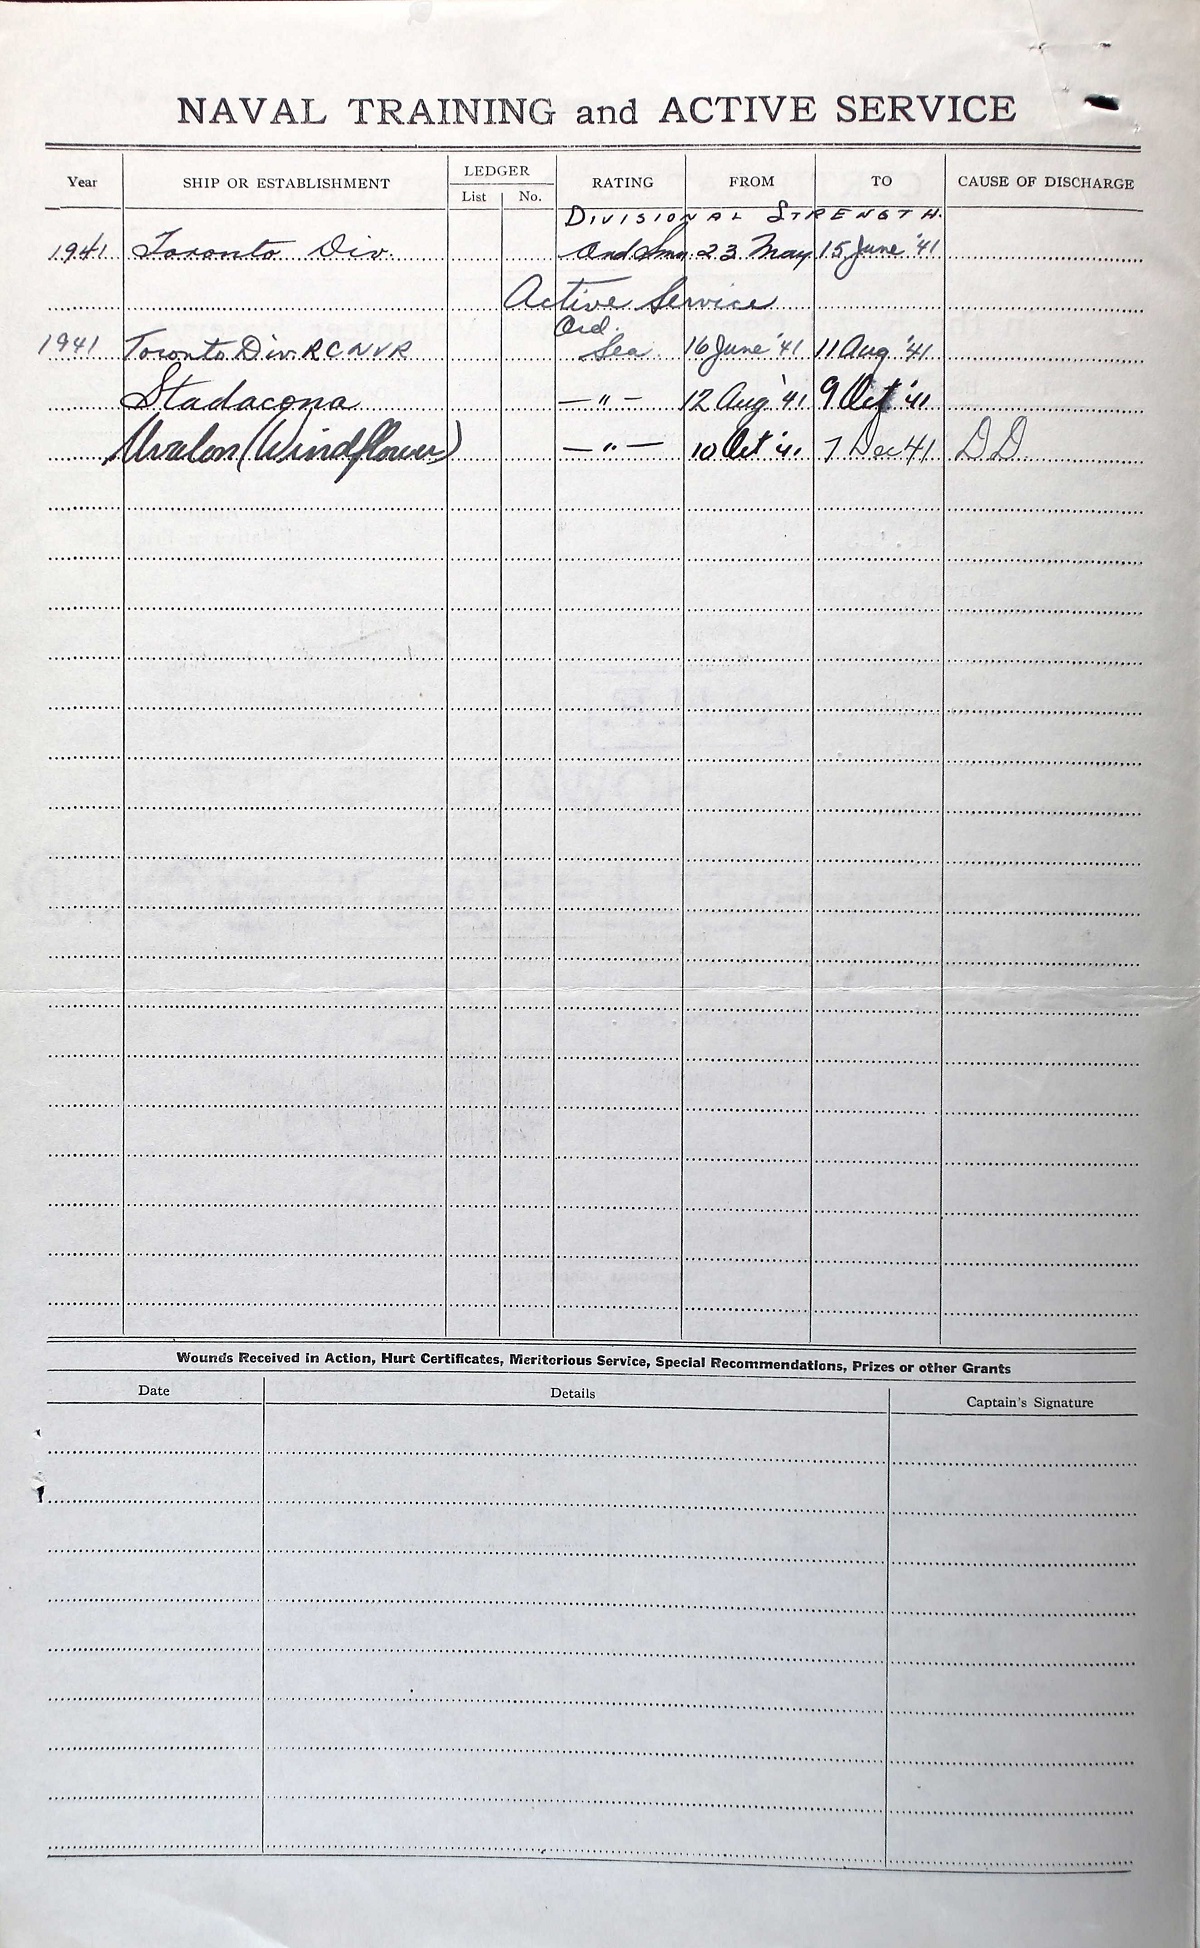 NAVAL TRAINING and ACTIVE SERVICE
Year SHIP OR ESTABLISHMENT LEDGER List No. RATING FROM TO CAUSE OF DISCHARGE
DIVISIONAL STRENGTH.
1941 Toronto Div. Ord Smn 23 May 15 June '41
Active Service
Ord.
1941 Toronto Div RCNVR Sea. 16 June '41 11 Aug '41
Stadacona —"— 12 Aug '41 9 Oct '41
Avalon (Windflower) —"— 10 Oct '41 7 Dec 41 DD
Wounds Received in Action, Hurt Certificates, Meritorious Service, Special Recommendations, Prizes or other Grants
Date Details Captain's Signature